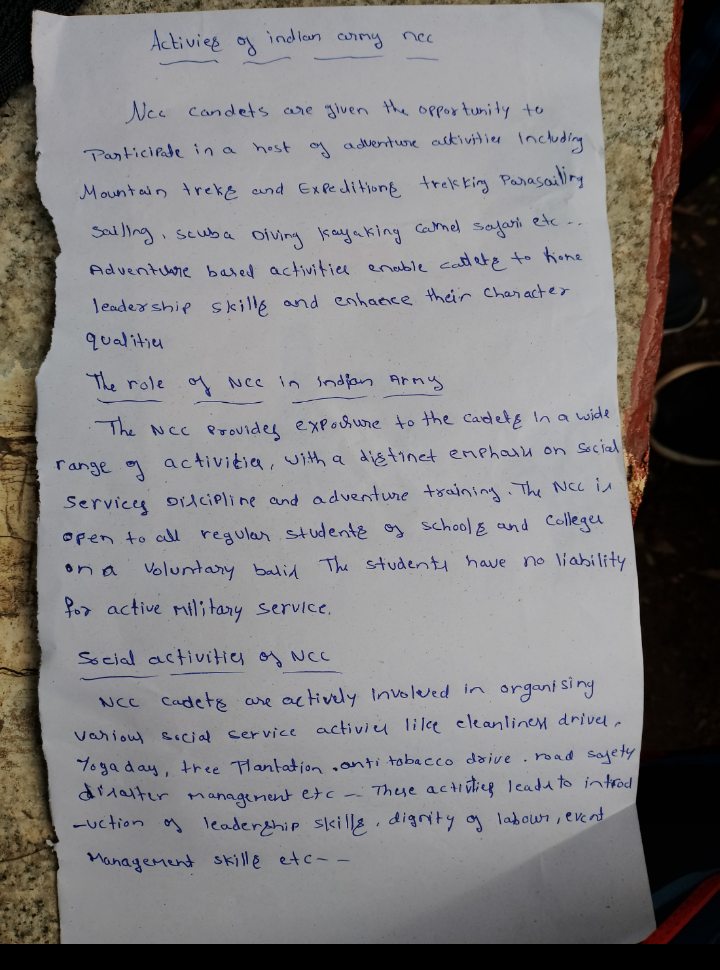 Activies of indian army ncc
Ncc candets are given the opportunity to
Participate in a host of adventure activities Including
Mountain treks and Expeditions trekking Parasailing
Sailing, scuba Diving kayaking Camel safari etc -..
Adventure based activities enable cadets to hone
leadership skills and enhance their character
qualities
The role of NCC in Indian Army
The NCC Provides exposure to the cadets in a wide
range of activities, with a distinct emphasis on Social
Services Discipline and adventure training. The NCC is
open to all regular students of schools and Colleges
on a voluntary basis The students have no liability
for active military service.
Social activities of NCC
NCC cadets are actively Involved in organising
various social service activies like cleanliness drives.
Yoga day, tree Plantation .anti tobacco drive . road safety
disaster management etc - These activities leads to introd
-uction of leadership skills, dignity of labour, event
Management skills etc - -